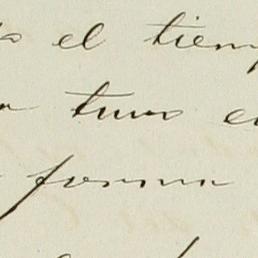 el tiem
tuvo e
forma